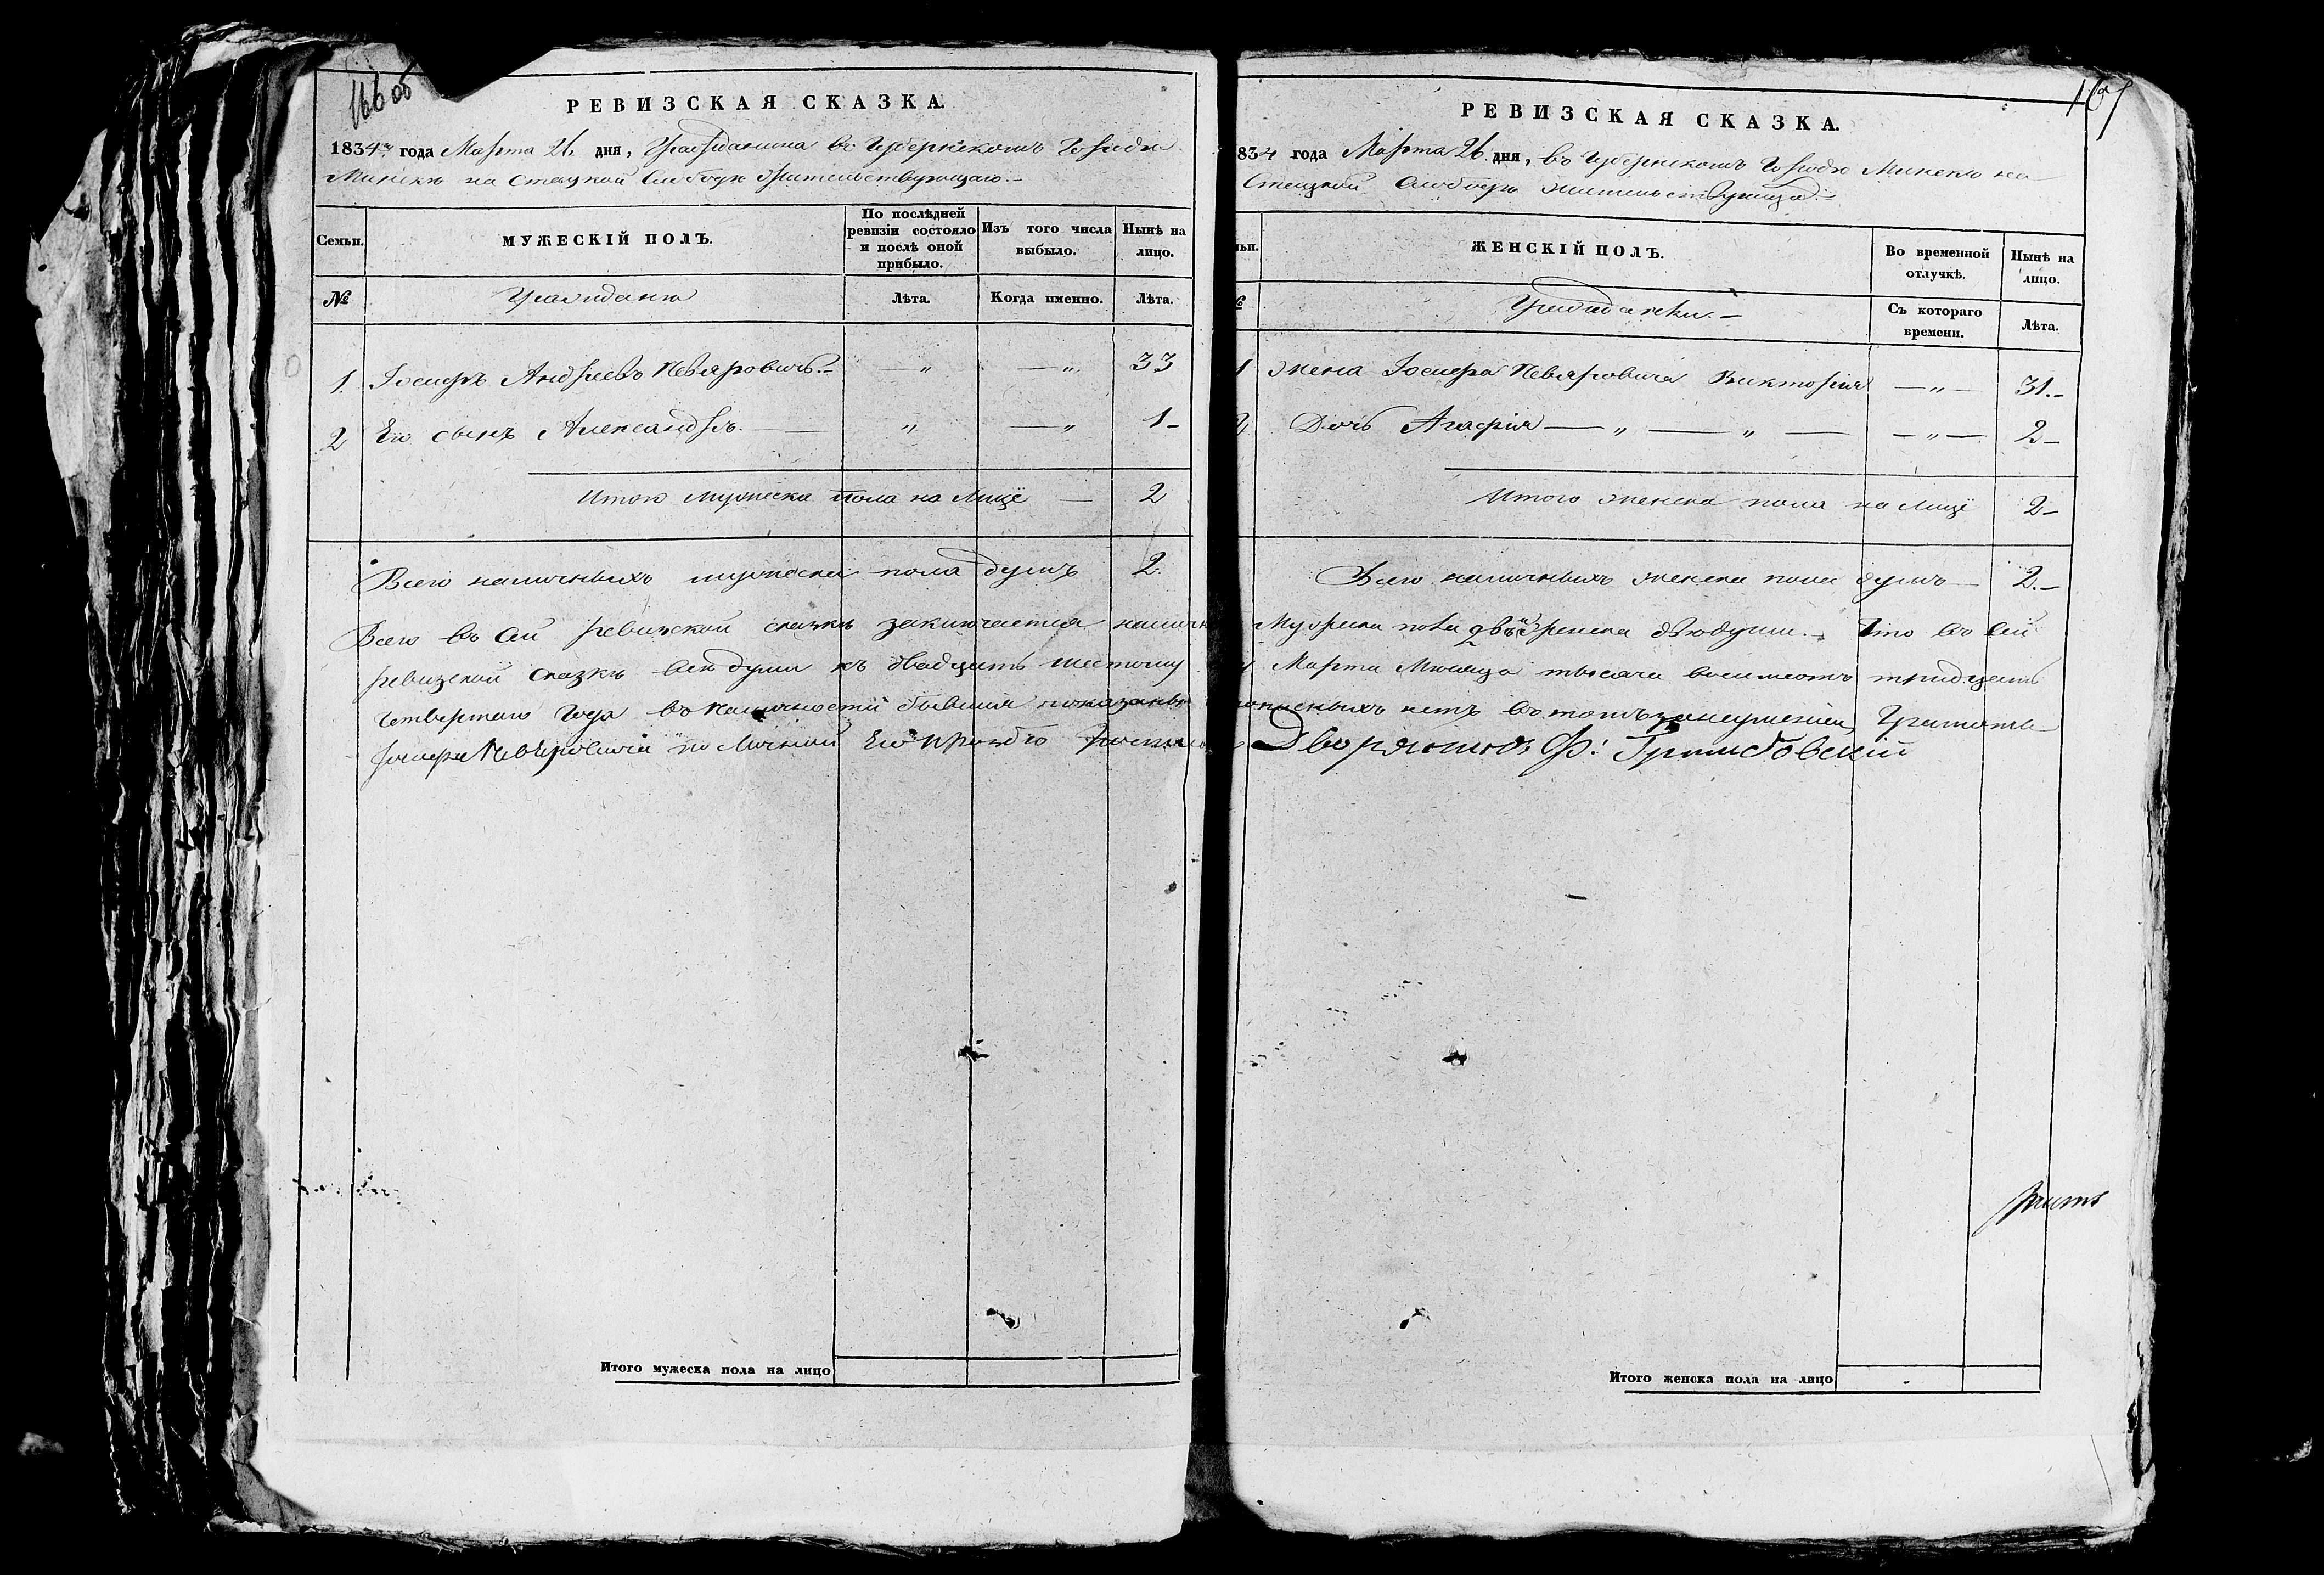 166 об
РЕВИЗСКАЯ СКАЗКА.
1834го года Марта 26 дня, Гражданина во Губернскомъ Городѣ
Минскѣ на Стецкой Слободѣ жительствующаго.-
Семьи. МУЖЕСКІЙ ПОЛЪ. По послѣдней ревизіи состояло и послѣ оной прибыло. Изъ того числа выбыло. Нынѣ на лицо.
№ Граждане Лѣта. Когда именно. Лѣта.
1. Іосифъ Андреевъ Невяровичъ.- — „ — „ 33
2 Его сынъ Александръ. — „ — „ 1-
Итого мужеска пола на лицо — 2
Всего наличныхъ мужеска пола душъ 2.
Всего въ сей ревизской сказкѣ заключается налич
ревизской сказкѣ всѣ души къ двадцать шестому
четвертаго года въ наличности бывшия показаны
Іосифа Невяровича по личной Его прозбѣ
Итого мужеска пола на лицо
167
РЕВИЗСКАЯ СКАЗКА.
834 года Марта 26 дня, во Губернскомъ Городѣ Минскѣ на
Стецкой Слободѣ жительствующа.-
ьи. ЖЕНСКІЙ ПОЛЪ. Во временной отлучкѣ. Нынѣ на лицо.
№ Гражданки.- Съ котораго времени. Лѣта.
1 Жена Іосифа Невяровича Викторія — „ — 31.-
2 Дочь Агафія — „ — „ — — „ — 2-
Итого женска пола на лицо 2-
Всего наличныхъ женска пола душъ — 2.-
Мужеска пола двѣ и женска двѣ души.- Что во сей
Марта Мѣсяца тысяча восемсотъ тридцать
прописныхъ нетъ въ томъ за неумѣніем Грамоты
Дворянинъ Ф:
Итого женска пола на лицо